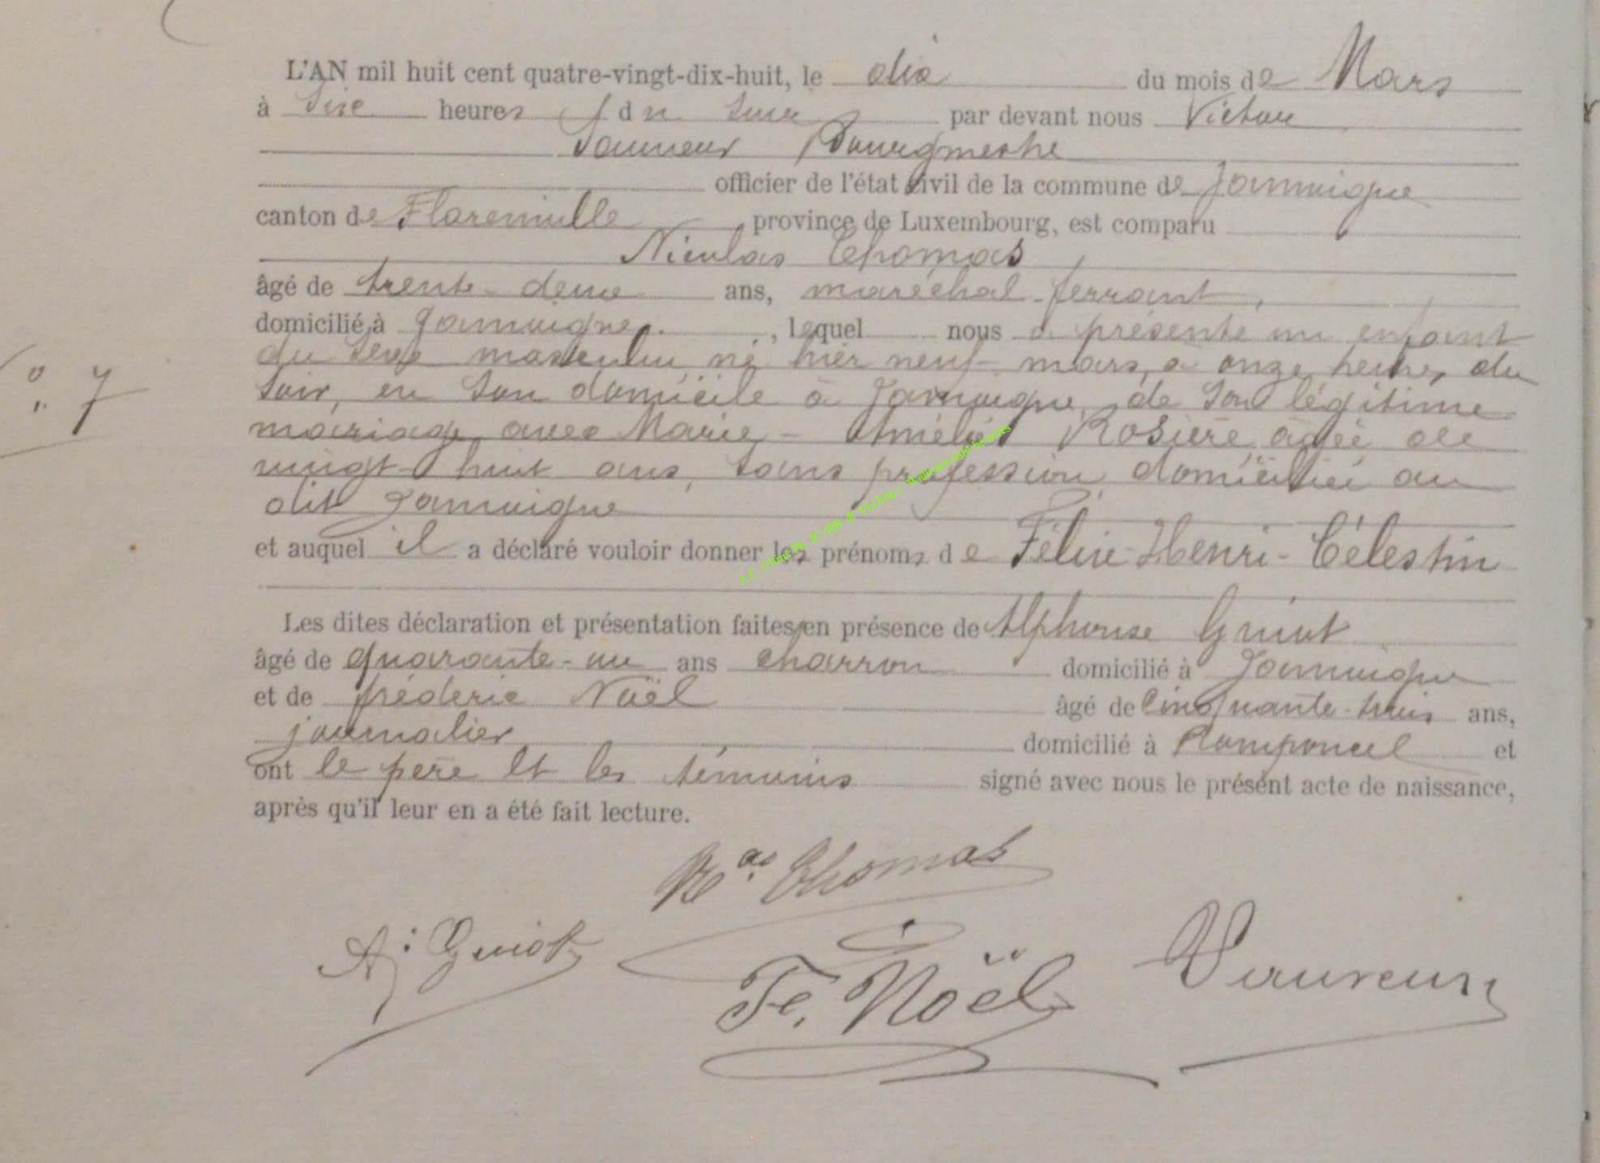 L'AN mil huit cent quatre-vingt-dix-huit, le dix du mois de Mars
à six heures du soir par devant nous Victore
Bourgmestre
officier de l'état civil de la commune de Jamoigne
canton de Florenville province de Luxembourg, est comparu
Nicolas Thomas
âgé de trente-deux ans, maréchal-ferrant,
domicilié à Jamoigne, lequel nous a présenté un enfant
du sexe masculin, né hier neuf mars, à onze heures du
N° 7
soir, en son domicile à Jamoigne, de son légitime
mariage avec Marie-Amélie Rosière, âgée de
vingt-huit ans, sans profession, domiciliée au
dit Jamoigne
et auquel il a déclaré vouloir donner les prénoms de Félix-Henri-Célestin
Les dites déclaration et présentation faites en présence de Alphonse Guiot
âgé de quarante-un ans charron domicilié à Jamoigne
et de frédéric Noël âgé de Cinquante-trois ans,
journalier domicilié à Romponcel et
ont le père et les témoins signé avec nous le présent acte de naissance,
après qu'il leur en a été fait lecture.
Nas. Thomas
A: Guiot
Fc. Noël